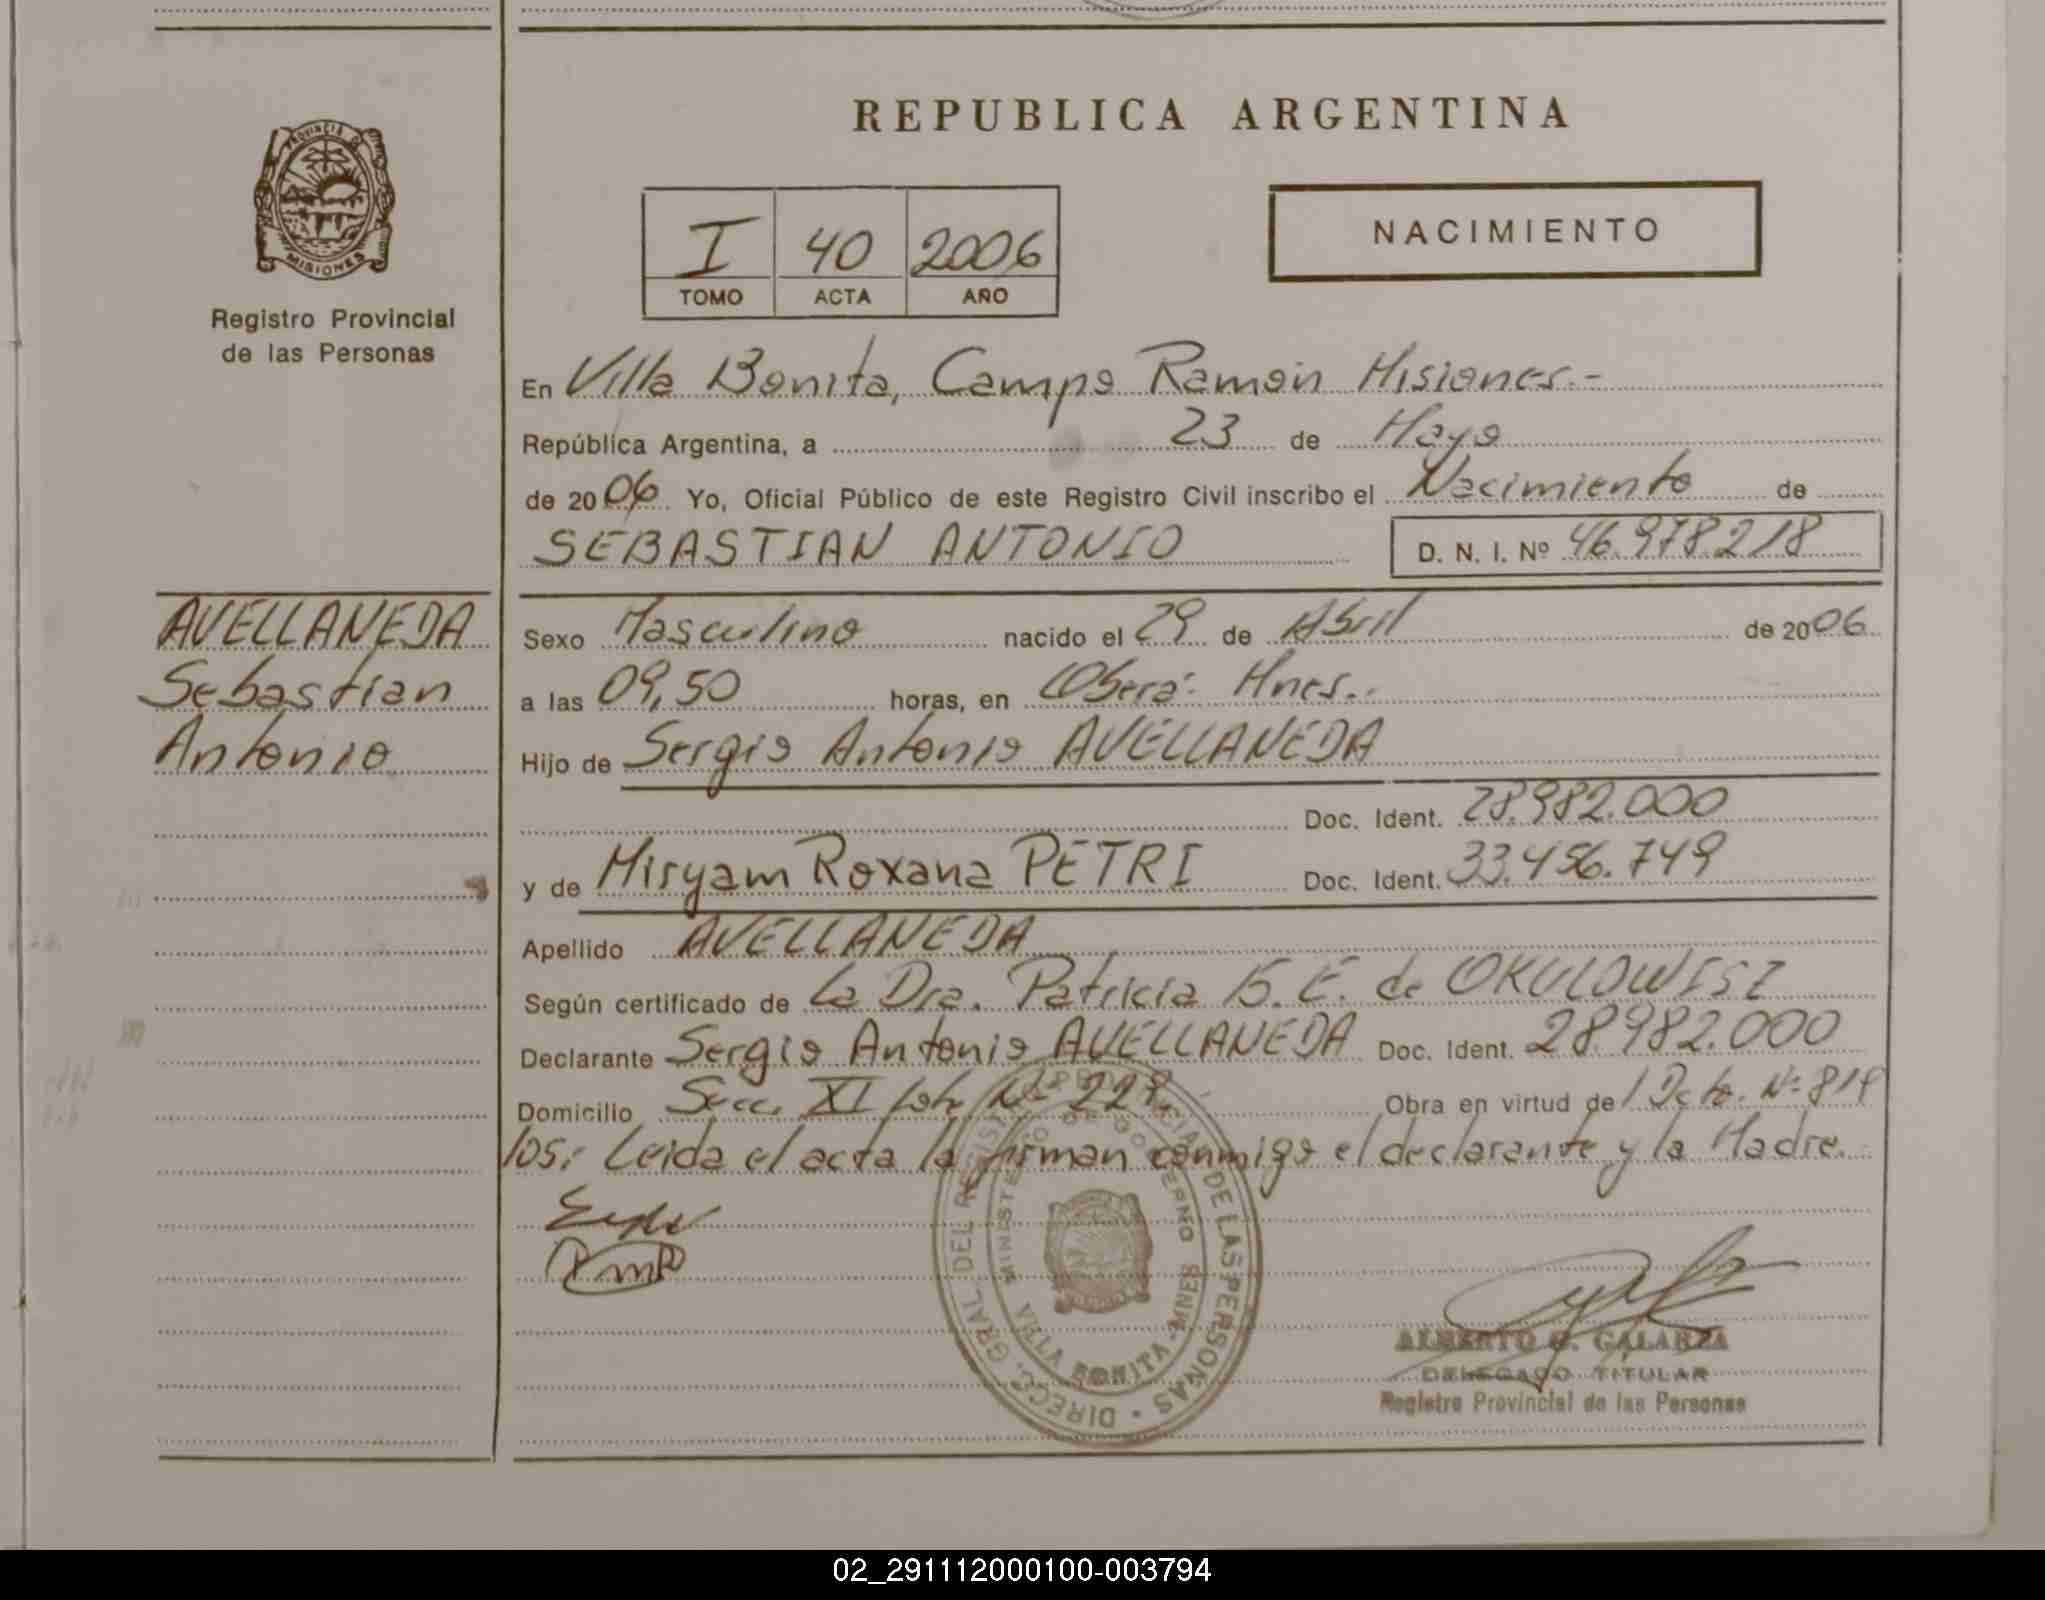 REPUBLICA ARGENTINA
PROVINCIA DE
MISIONES
Registro Provincial
de las Personas
I 40 2006
TOMO ACTA AÑO
NACIMIENTO
En Villa Bonita, Campo Ramón Misiones.-
República Argentina, a 23 de Mayo
de 2006 Yo, Oficial Público de este Registro Civil inscribo el Nacimiento de
SEBASTIAN ANTONIO D. N. I. Nº 46.978.218
AVELLANEDA
Sebastian
Antonio
Sexo Masculino nacido el 29 de Abril de 2006
a las 09,50 horas, en Oberá: Mnes.
Hijo de Sergio Antonio AVELLANEDA
Doc. Ident. 28.982.000
y de Miryam Roxana PETRI Doc. Ident. 33.456.749
Apellido AVELLANEDA
Según certificado de La Dra. Patricia E. de OKULOWISZ
Declarante Sergio Antonio AVELLANEDA Doc. Ident. 28.982.000
Domicilio Secc. XI lote Nº 228 Obra en virtud de Dcto. Nº 819
los: Leida el acta la firman conmigo el declarante y la Madre.
DIRECC. GRAL DEL REGIST. PROVINCIAL DE LAS PERSONAS
MINISTERIO DE GOBIERNO
VILLA BONITA - MNES
ALBERTO G. GALARZA
DELEGADO TITULAR
Registro Provincial de las Personas
02_291112000100-003794